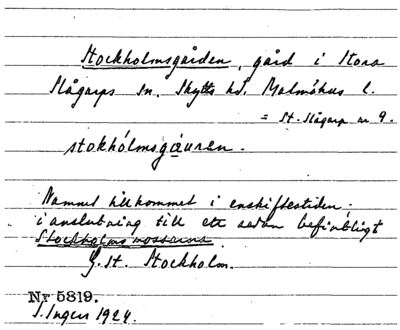 Stockholmsgården, gård i Stora
Slågarps sn. Skytts hd. Malmöhus l.
= St. Slågarp nr 9.
stokhólmsgáuren.
Namnet tillkommet i enskiftestiden,
i anslutning till ett redan befintligt
Stockholms mossarna
G. st. Stockholm.
Nr 5819.
I. Ingers 1924.